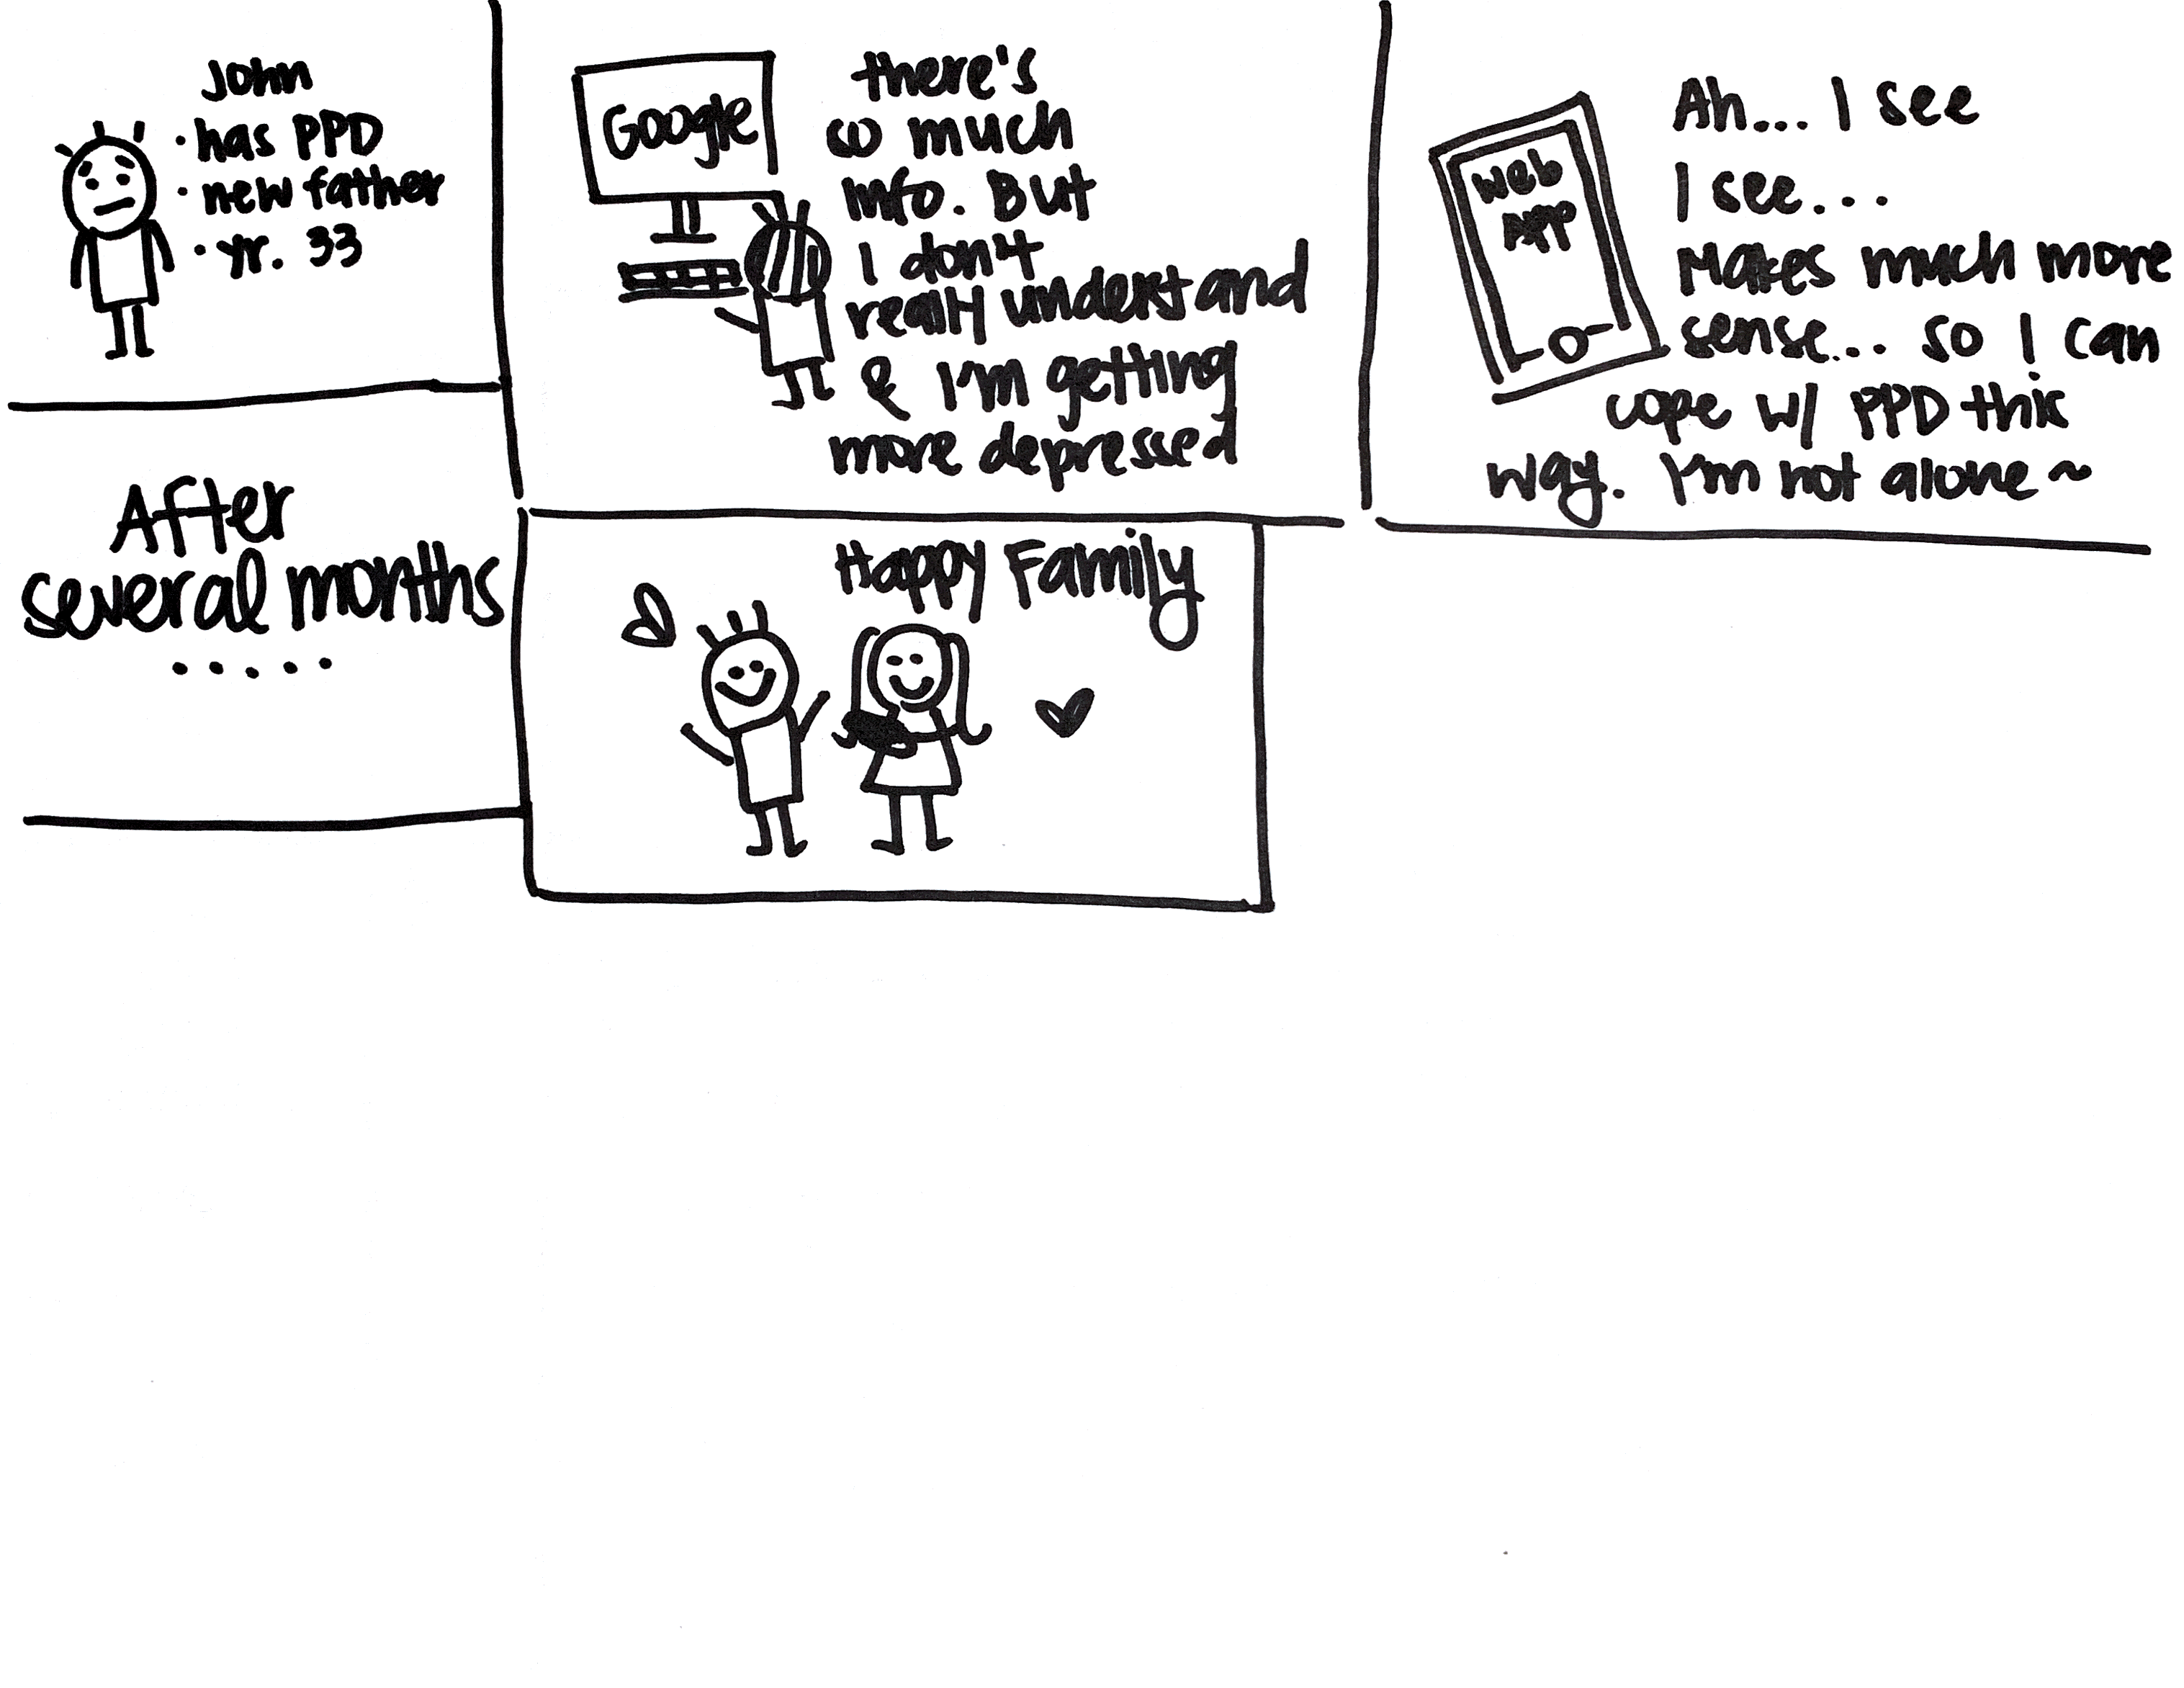 John
• has PPD
• new father
• yr. 33
Google
there's
so much
info. But
I don't
really understand
& I'm getting
more depressed
Web
APP
Ah... I see
I see...
Makes much more
sense... so I can
cope w/ PPD this
way. I'm not alone ~
After
several months
.....
Happy Family